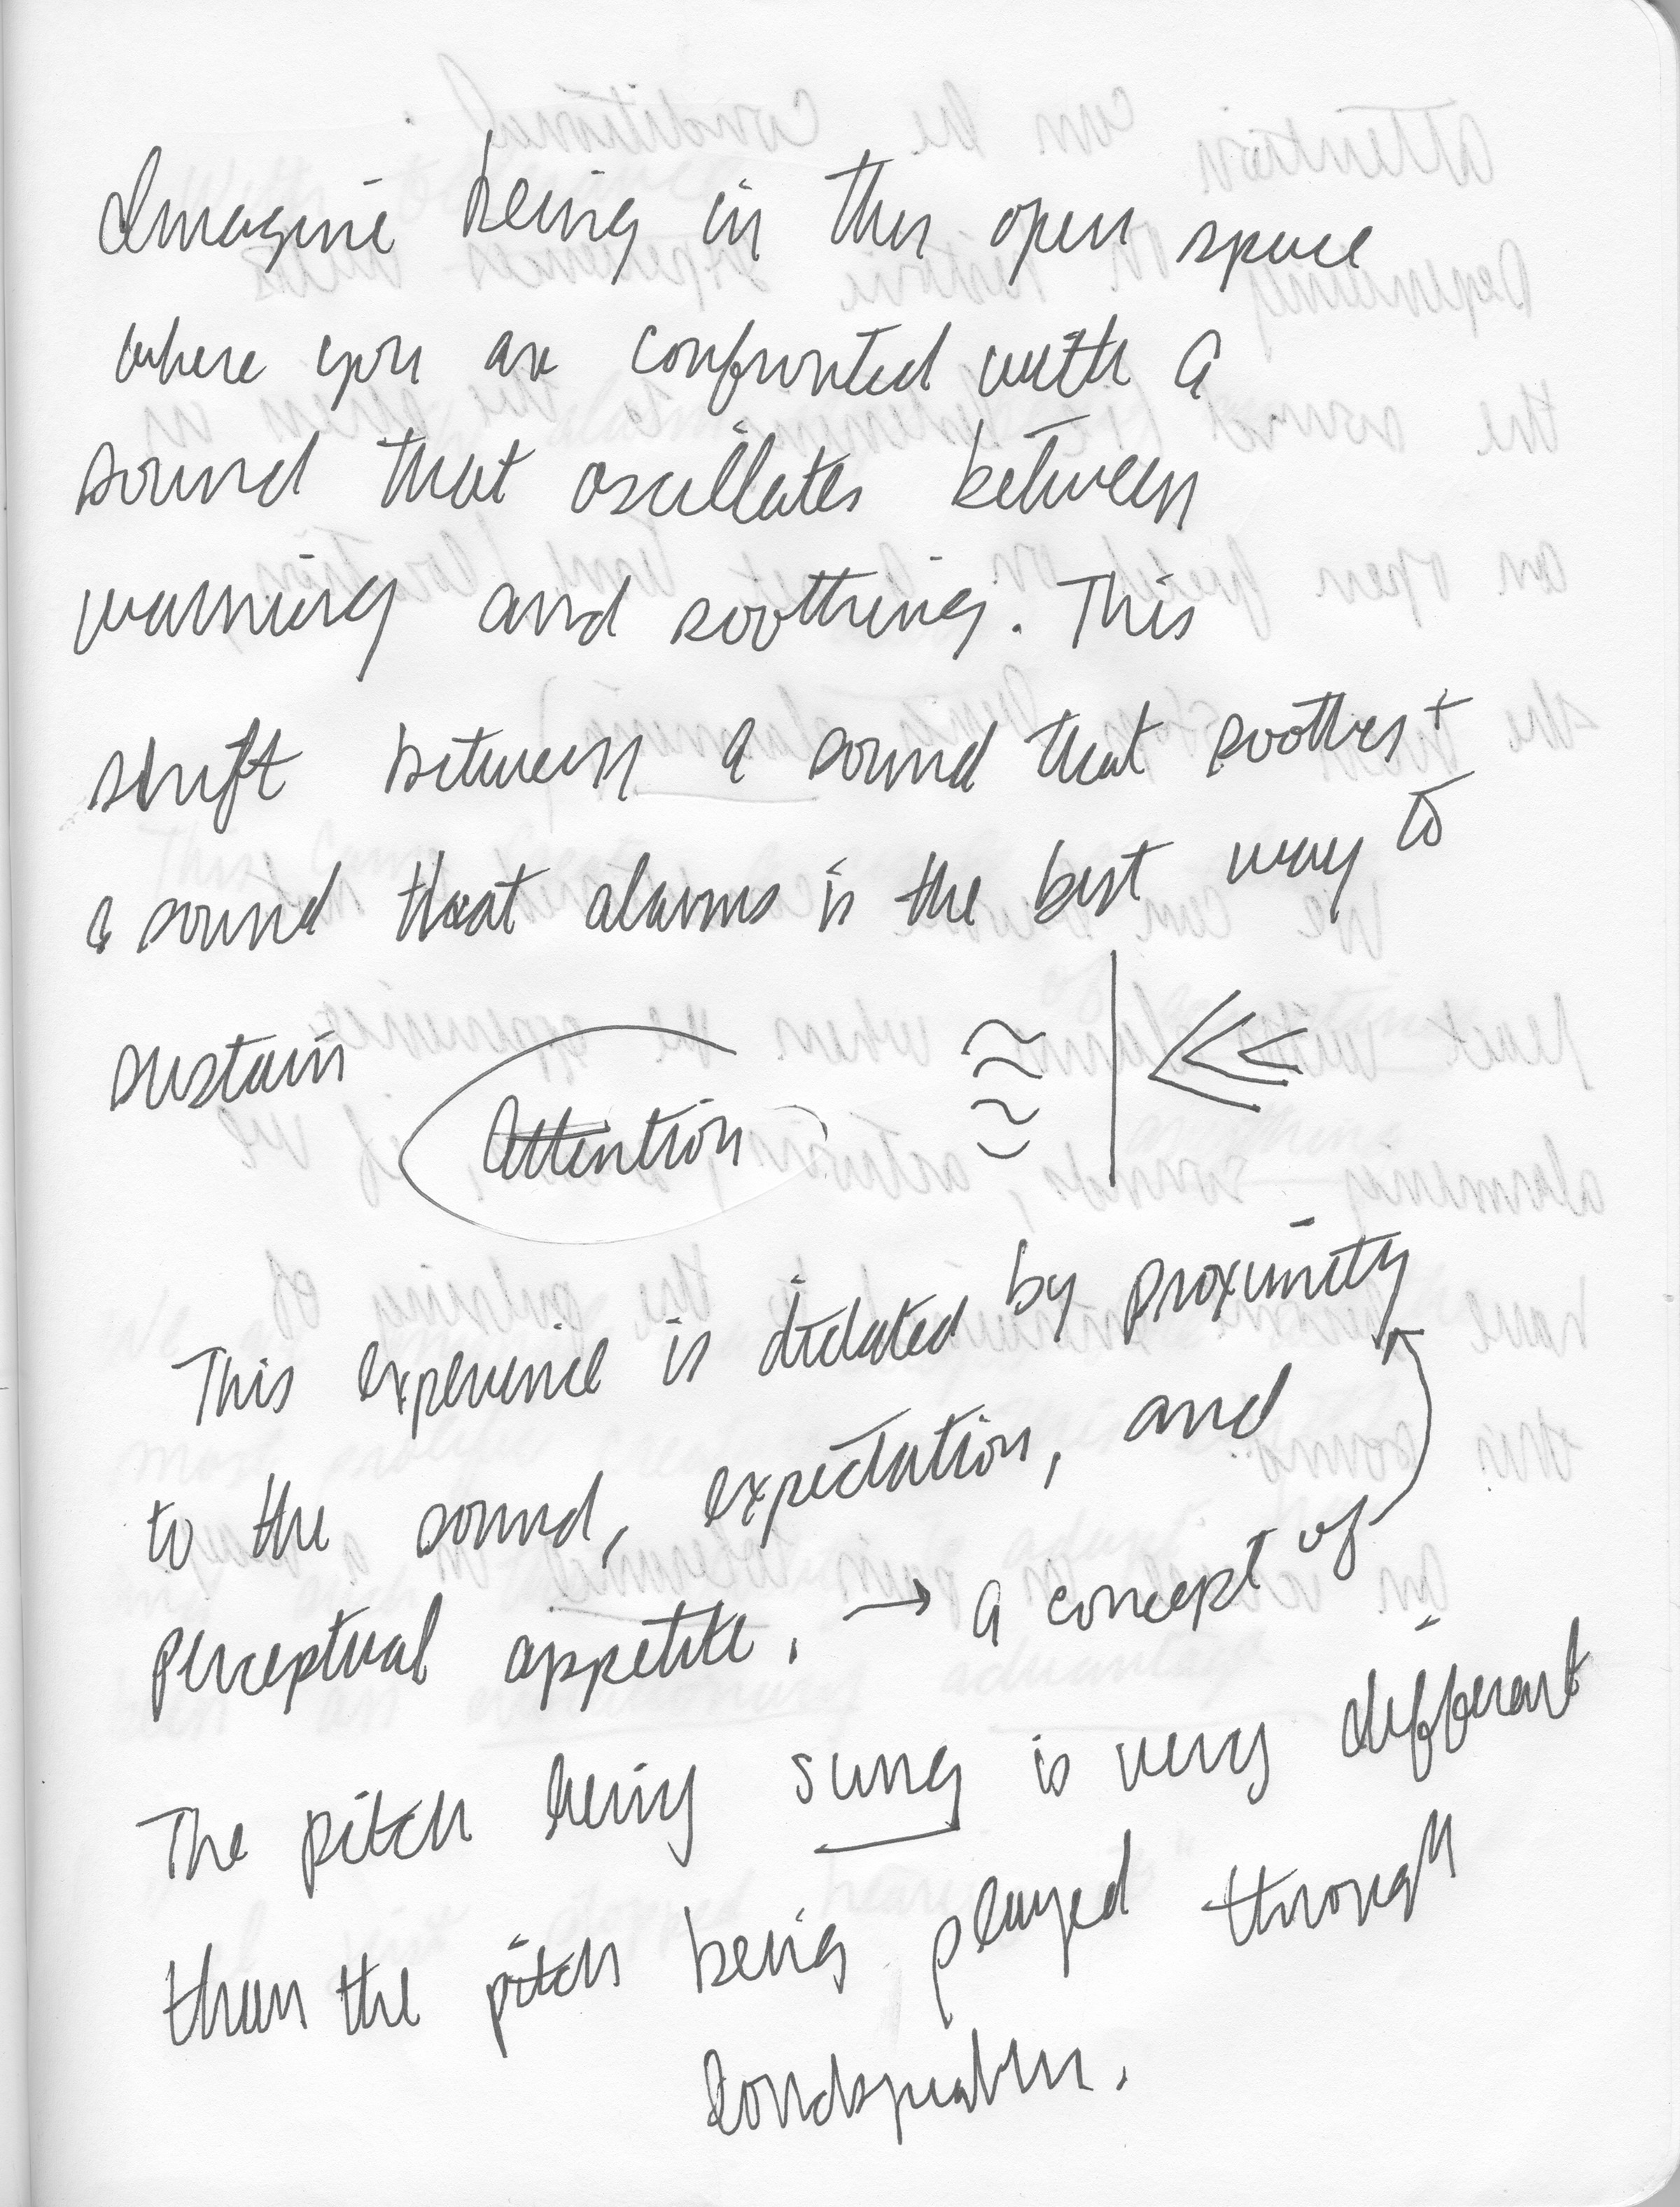 Imagine being in this open space
where you are confronted with a
sound that oscillates between
warning and soothing. This
shift between a sound that soothes +
a sound that alarms is the best way to
sustain Attention
This experience is dictated by proximity
to the sound, expectation, and
perceptual appetite. → a concept of
The pitch being sung is very different
than the pitch being played through
loudspeaker.